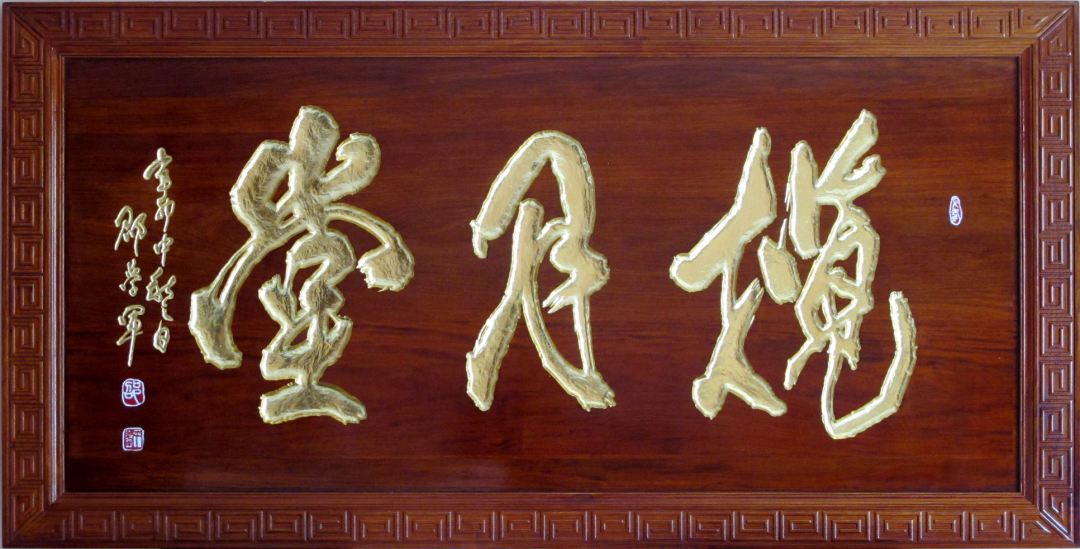 攬月堂
辛卯中秋日
邵学军
邵